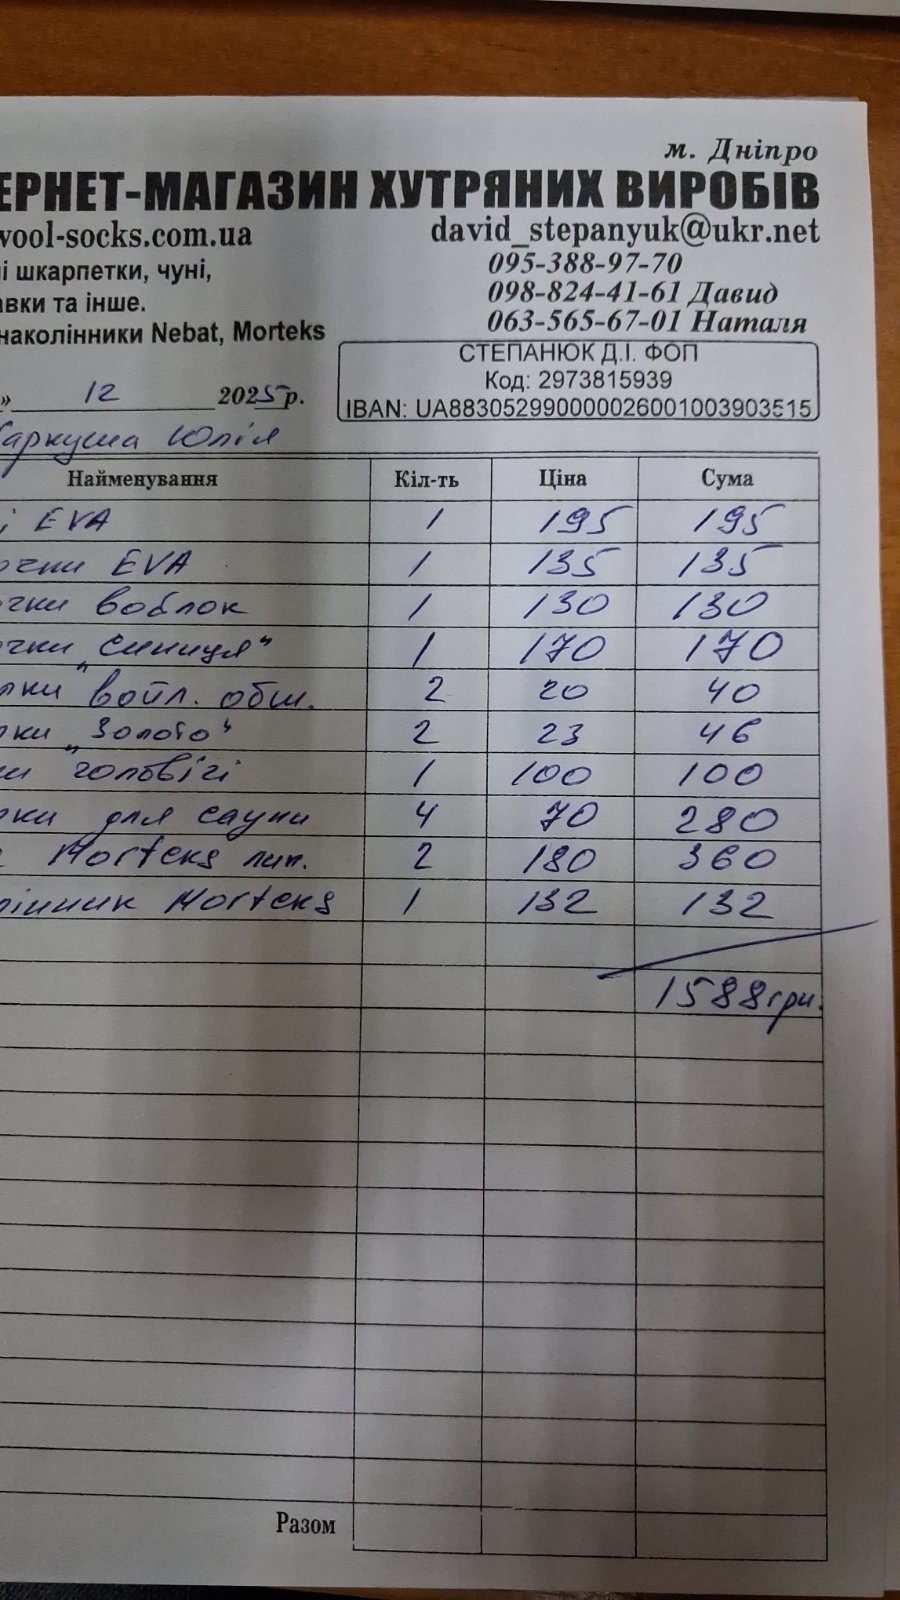 м. Дніпро
ЕРНЕТ-МАГАЗИН ХУТРЯНИХ ВИРОБІВ
wool-socks.com.ua
david_stepanyuk@ukr.net
і шкарпетки, чуні,
095-388-97-70
авки та інше.
098-824-41-61 Давид
наколінники Nebat, Morteks
063-565-67-01 Наталя
СТЕПАНЮК Д.І. ФОП
Код: 2973815939
IBAN: UA883052990000026001003903515
» 12 2025 р.
аркуша Юлія
Найменування Кіл-ть Ціна Сума
і EVA 1 195 195
очки EVA 1 135 135
очки воблок 1 130 130
очки „Синиця" 1 170 170
лки войл. обш. 2 20 40
лки „Золото" 2 23 46
ки чоловічі 1 100 100
рки для сауни 4 70 280
Morteks лип. 2 180 360
лінник Morteks 1 132 132
1588грн.
Разом